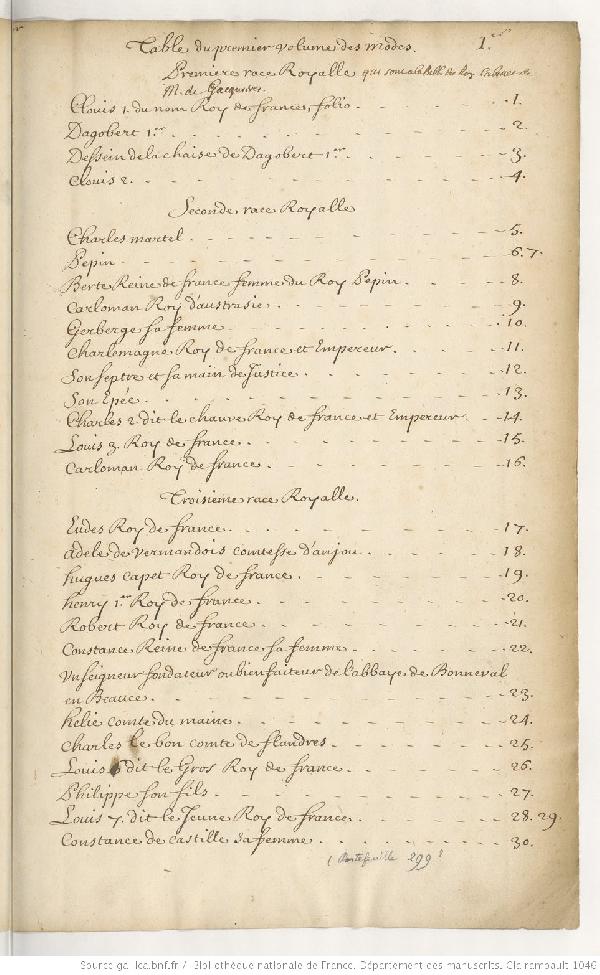 Table du premier volume des modes. 1.
Premiere race Royalle qui
M. de Gacqueres.
Clouis 1. du nom Roy de france, folio - - - 1.
Dagobert 1er - - - 2.
Dessein de la chaise de Dagobert 1er - - - 3.
Clouis 2. - - - 4.
Seconde race Royalle
Charles martel - - - 5.
Pepin - - - 6. 7.
Berte Reine de france femme du Roy Pepin - - - 8.
Carloman Roy d'austrasie - - - 9.
Gerberge sa femme - - - 10.
Charlemagne Roy de france et Empereur - - - 11.
Son septre et sa main de Justice - - - 12.
Son Epée - - - 13.
Charles 2. dit le chauve Roy de france et Empereur - - - 14.
Louis 3. Roy de france - - - 15.
Carloman Roy de france - - - 16.
Troisieme race Royalle.
Eudes Roy de france - - - 17.
adele de vermandois comtesse d'anjou - - - 18.
hugues capet Roy de france - - - 19.
henry 1er Roy de france - - - 20.
Robert Roy de france - - - 21.
Constance Reine de france sa femme - - - 22.
Un seigneur fondateur ou bienfaiteur de l'abbaye de Bonneval
en Beauce - - - 23.
helie comte du maine - - - 24.
Charles le bon comte de flandres - - - 25.
Louis 6 dit le Gros Roy de france - - - 26.
Philippe son fils - - - 27.
Louis 7. dit le Jeune Roy de france - - - 28. 29.
Constance de castille sa femme - - - 30.
( Portefeuille 299 )
Source gallica.bnf.fr / Bibliothèque nationale de France. Département des manuscrits. Clairambault 1046